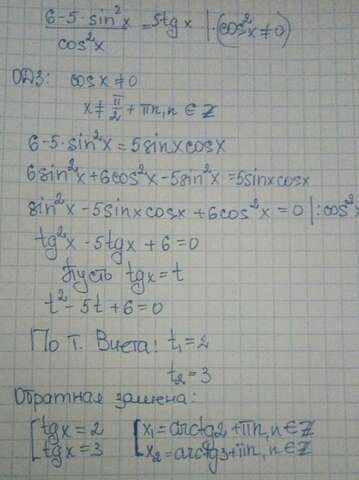 (6-5·sin²x)/cos²x = 5tgx |·(cos²x≠0)
ОДЗ: cosx≠0
x≠π/2+πn, n∈Z
6-5·sin²x=5sinxcosx
6sin²x+6cos²x-5sin²x=5sinxcosx
sin²x-5sinxcosx+6cos²x=0 |:cos²x
tg²x-5tgx+6=0
Пусть tgx=t
t²-5t+6=0
По т. Виета: t₁=2
t₂=3
Обратная замена:
[tgx=2 [x₁=arctg2+πn, n∈Z
[tgx=3 [x₂=arctg3+πn, n∈Z